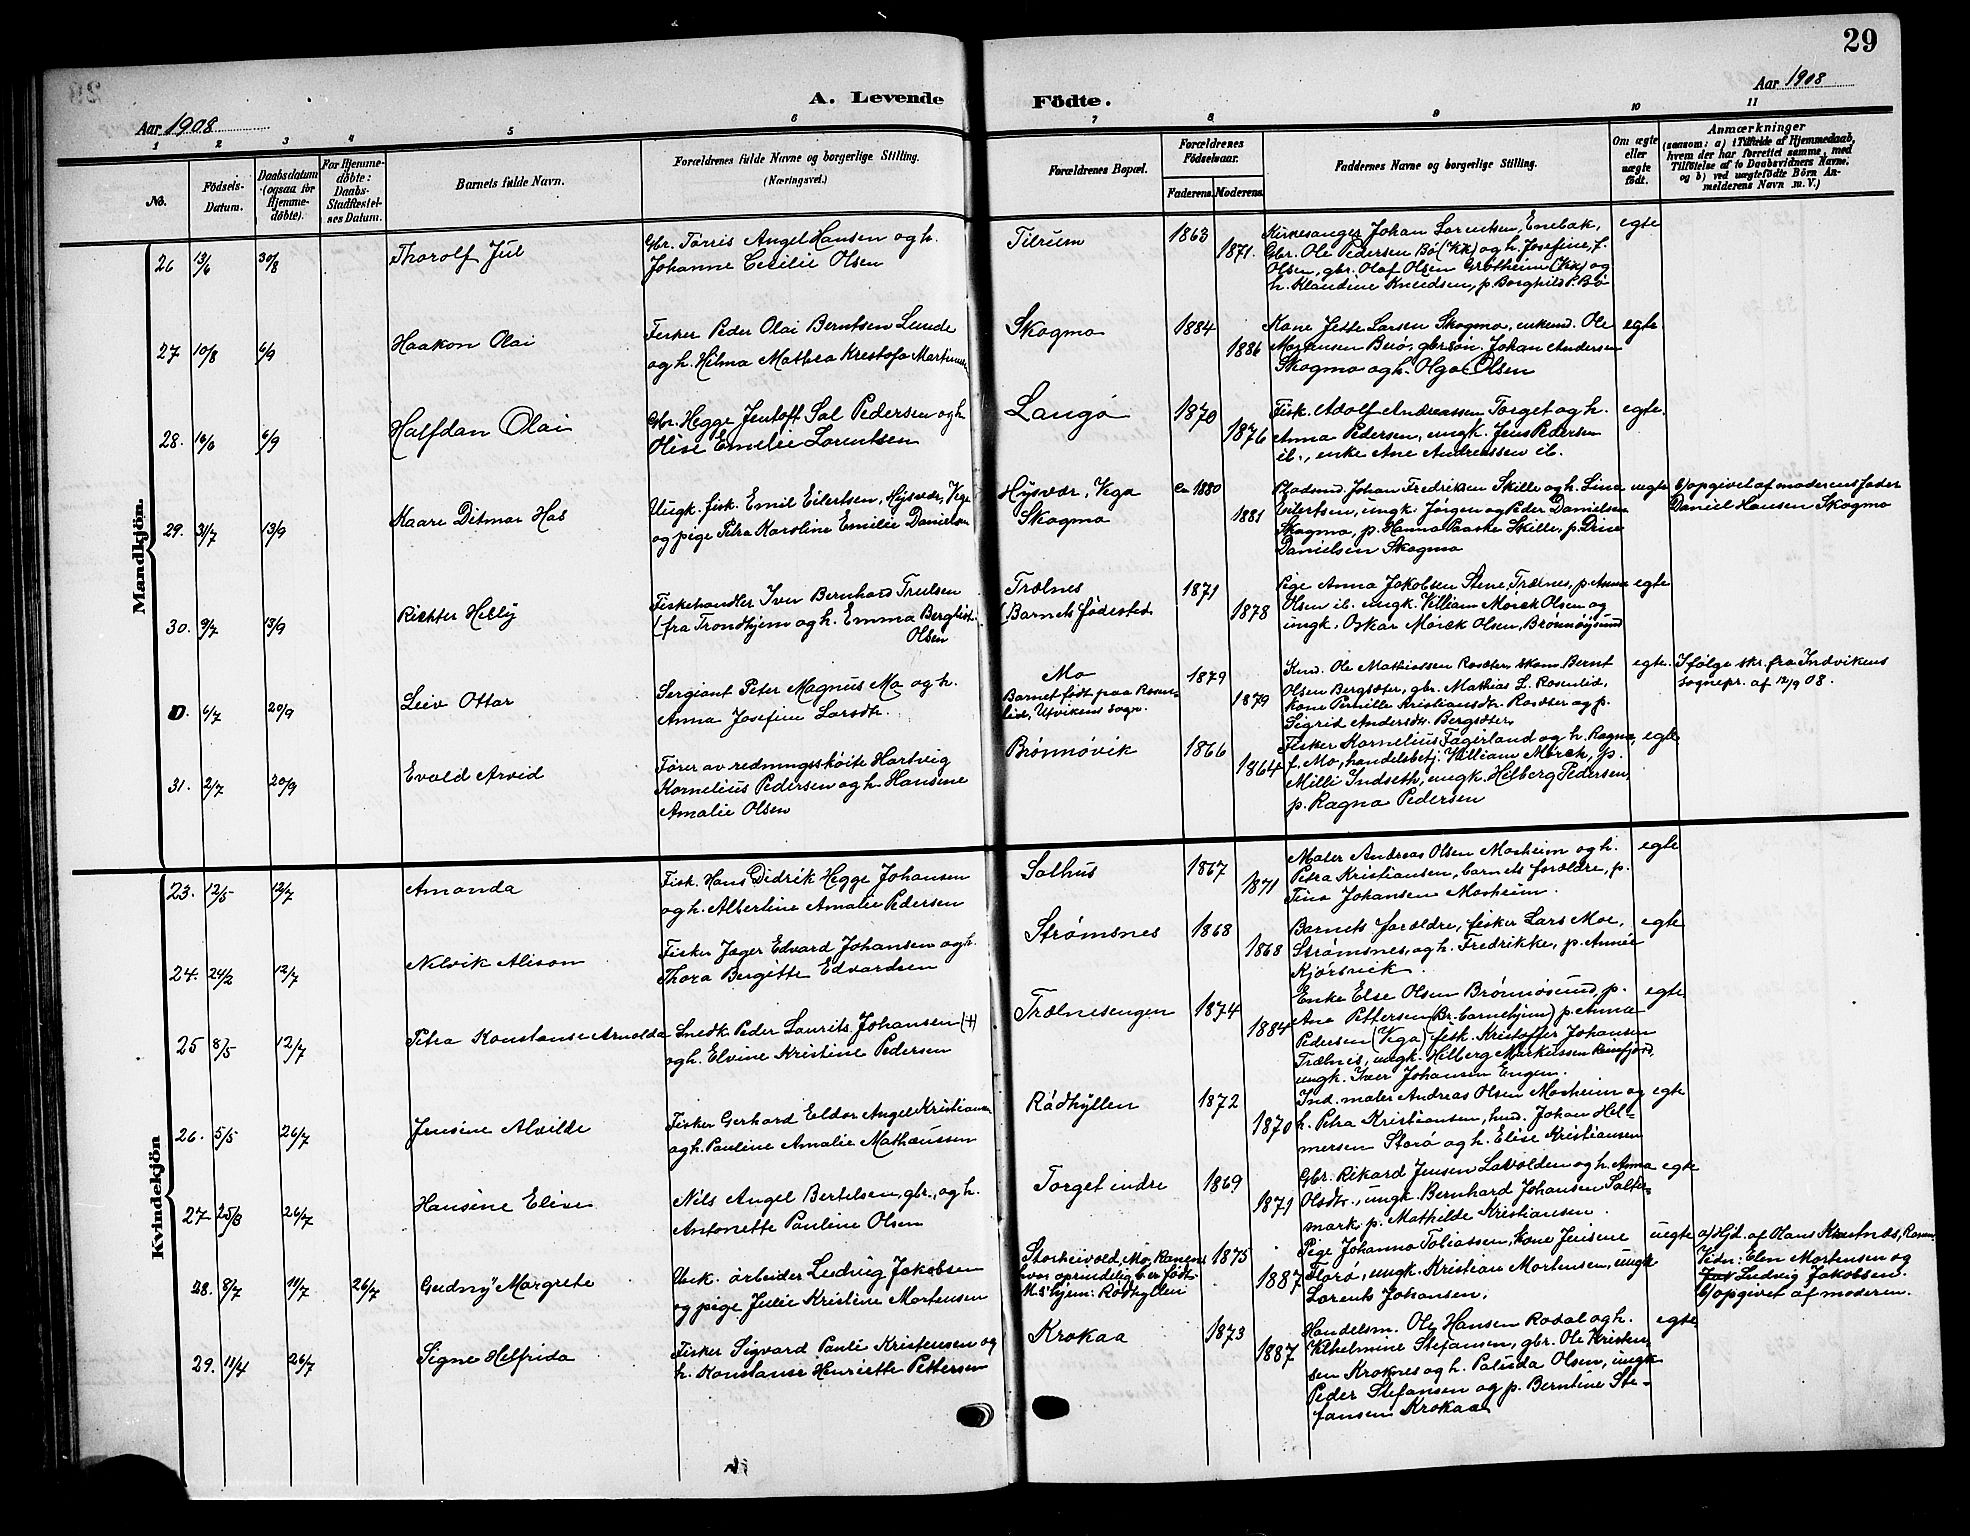 29
A. Levende Födte.
Aar 1908
Aar 1908
1 2 3 4 5 6 7 8 9 10 11
No.
Födsels-
Datum.
Daabsdatum
(ogsaa for
Hjemme-
döbte).
For Hjemme-
döbte:
Daabs-
Stadfæstel-
ses Datum.
Barnets fulde Navn.
Forældrenes fulde Navne og borgerlige Stilling.
(Næringsvei.)
Forældrenes Bopæl.
Forældrenes
Födselsaar.
Faderens. Moderens.
Faddernes Navne og borgerlige Stilling.
Om ægte
eller
uægte
födt.
Anmærkninger
(saasom: a) i Tilfælde af Hjemmedaab,
hvem der har forrettet samme, med
Tilföielse af to Daabsvidners Navne,
og b) ved uægtefödte Börn An-
melderens Navn m. V.)
Mandkjön.
26 13/6 30/8 Thorolf Jul
Gbr. Torris Angel Hansen og h.
Johanne Cecilie Olsen
Tilrum 1863 1871.
Kirkesanger Johan Lorentsen, Enebak,
Gbr. Ole Pedersen Bö (Vik) og h. Josefine, f.
Olsen, gbr. Olaf Olsen Grotheim (Vik) og
h. Klaudine Knudsen, p. Borghild P. Bö
egte
27 10/8 6/9 Haakon Olai
Fisker Peder Olai Berntsen Lunde
og h. Hilma Mathea Krestofa Martinsen
Skogmo 1884 1886
Kone Jette Larsen Skogmo, enkem. Ole
Mortensen Berö, gbrsön. Johan Andersen
Skogmo og h. Olga Olsen
egte
28. 6/9 Halfdan Olai
Gbr. Hegge Jentoft Sal Pedersen og h
Olise Emelie Lorentsen
Langö 1870 1876
Fisk. Adolf Andreassen Torget og h.
Anna Pedersen, ungk. Jens Pedersen
ib., enke Ane Andreassen ib.
egte.
29. 31/7 13/9 Kaare Ditmar Has
Ungk. fisk. Emil Eilertsen, Hysvær, Vega
og pige Petra Karoline Emilie Danielsen
Hysvær, Vega
Skogmo
ca 1880 1881
Pladsmd. Johan Fredriksen Skille og h. Lina
Eilertsen, ungk. Jörgen og Peder Danielsen
Skogmo, p. Hanna Paaske Skille, p. Dina
Danielsen Skogmo
uegte
b) opgivet af moderens fader
Daniel Hansen Skogmo
30. 9/7 13/9 Richter Helly
Fiskehandler Iver Bernhard Trulsen
(fra Trondhjem og h. Emma Bergliot
Olsen
Trælnes
(Barnets födested.
1871 1878
Pige Anna Jakobsen Stene, Trælnes, p. Anna
Olsen ib. ungk. William Mörck Olsen og
ungk. Oskar Mörck Olsen, Brönnöysund
egte
0. 6/7 20/9 Leiv Ottar
Sergiant Peter Magnus Mo og h.
Anna Josefine Larsdtr.
Mo
Barnet födt paa Rosen-
lid, Utvikens sogn.
1879 1879
Kmd. Ole Mathiassen Rosæter, skom. Bernt
Olsen Bergsæter, gbr. Mathias L. Rosenlid,
kone Pernille Kristiansdtr. Rosæter og p.
Sigrid Andersdtr. Bergsæter
egte.
Ifölge skr. fra Indvikens
sognepr. af 12/9 08.
31. 2/7 20/9 Evald Arvid
Förer av redningssköite Hartvig
Kornelius Pedersen og h. Hansine
Amalie Olsen
Brönnövik 1866 1864
Fisker Kornelius Fagerland og h. Ragna,
f. Mo, handelsbetj. William Mörck, p.
Milli Indseth, ungk. Hilberg Pedersen,
p. Ragna Pedersen
egte
Kvindekjön
23. 12/5 12/7 Amanda
Fisk. Hans Didrik Hegge Johansen
og h. Albertine Amalie Pedersen
Salhus 1867 1871
Maler Andreas Olsen Mosheim og h.
Petra Kristiansen, barnets forældre, p.
Tina Johansen Mosheim.
egte
24. 24/2 12/7 Nelvik Alison
Fisker Jager Edvard Johansen og h.
Thora Bergitte Edvardsen
Strömsnes 1868 1868
Barnets forældre, fisker Lars Moe,
Strömsnes, og h. Fredrikke, p. Annie
Kjörsvik.
egte
25 8/5 12/7 Petra Konstanse Arnolda
Snedk. Peder Laurits Johansen (+)
og h. Elvine Kristine Pedersen
Trælnesengen 1874 1884
Enke Else Olsen Brönnösund, p.
Ane Pettersen (Br. barnehjem) p. Anna
Pedersen (Vega) fisk. Kristoffer Johansen
Trælnes, ungk. Hilberg Markussen Reinfjord,
ungk. Iver Johansen Engen.
egte.
26. 5/5 26/7 Jensine Alvilde
Fisker Gerhard Eldor Angel Kristiansen
og h. Pauline Amalie Mathæussen
Rödhyllen 1872 1870
Ind. maler Andreas Olsen Mosheim og
h. Petra Kristiansen, hmd. Johan Hel-
mersen Storö og h. Elise Kristiansen
egte
27 25/3 26/7 Hansine Elise
Nils Angel Bertelsen, gbr., og h.
Antonette Pauline Olsen
Torget indre 1869 1871
Gbr. Rikard Jensen Lavolden og h. Anna
Olsdtr., ungk. Bernhard Johansen Salte-
mark, p. Mathilde Kristiansen.
egte
28. 8/7 11/7 26/7 Gudny Margrete
Unk. arbeider Ludvig Jakobsen
og pige Julie Kristine Mortensen
Storheivold, Mo, Ranen,
hvor oprindelig b er födt
M's hjem: Rödhyllen
1875 1887
Pige Johanna Tobiassen, kone Jensine
Storö, ungk. Kristian Mortensen, ungk
Lorents Johansen,
uegte
a) Hjd. af Olaus Krutnes, Ranen.
Vidn: Elen Mortensen og
Ludvig Jakobsen.
b) opgivet af moderen.
29. 11/4 26/7 Signe Helfrida
Fisker Sigvard Pauli Kristensen og
h. Konstanse Henriette Pettersen
Krokaa 1873 1887
Handelsm. Ole Hansen Rodal og h.
Vilhelmine Stefansen, gbr. Ole Kristen-
sen Kroknes og h. Palida Olsen, ungk
Peder Stefansen og p. Berntine Ste-
fansen Krokaa
egte